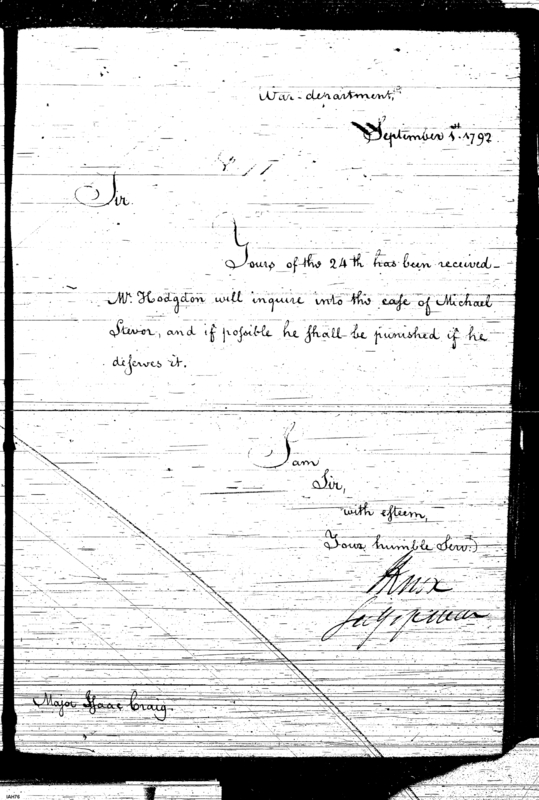 War-department,
September 1st. 1792
Sir
Yours of the 24th has been received_
Mr. Hodgdon will inquire into the case of Michael
Stevor, and if possible he shall be punished if he
deserves it.
I am
Sir,
with esteem,
Your humble Servt.
HKnox
Secy of war
Major Isaac Craig
IAH76